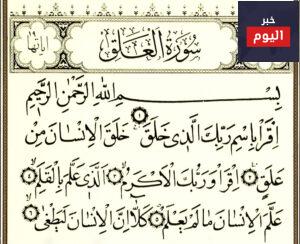 خبر
اليوم
سُورَةُ الْعَلَقِ
آيَاتُهَا
بِسْمِ اللهِ الرَّحْمٰنِ الرَّحِيمِ
اِقْرَأْ بِاسْمِ رَبِّكَ الَّذِي خَلَقَ ۝١ خَلَقَ الْاِنْسَانَ مِنْ
عَلَقٍ ۝٢ اِقْرَأْ وَرَبُّكَ الْاَكْرَمُ ۝٣ الَّذِي عَلَّمَ بِالْقَلَمِ ۝٤
عَلَّمَ الْاِنْسَانَ مَا لَمْ يَعْلَمْ ۝٥ كَلَّا اِنَّ الْاِنْسَانَ لَيَطْغٰى ۝٦